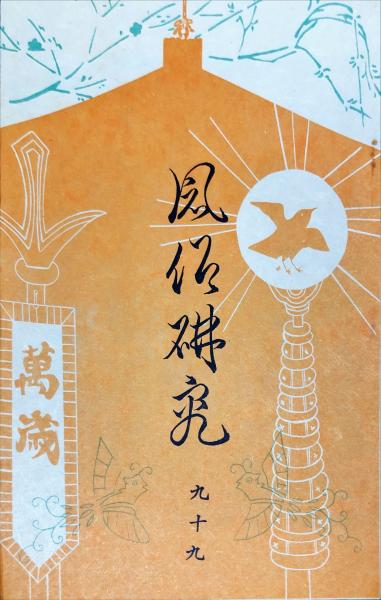 風俗研究
九十九
萬歳